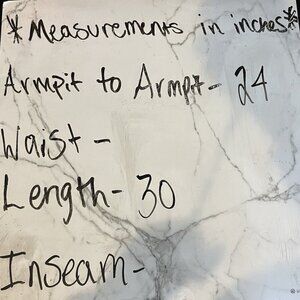 * Measurements in inches*
Armpit to Armpit- 24
Waist -
Length- 30
Inseam-